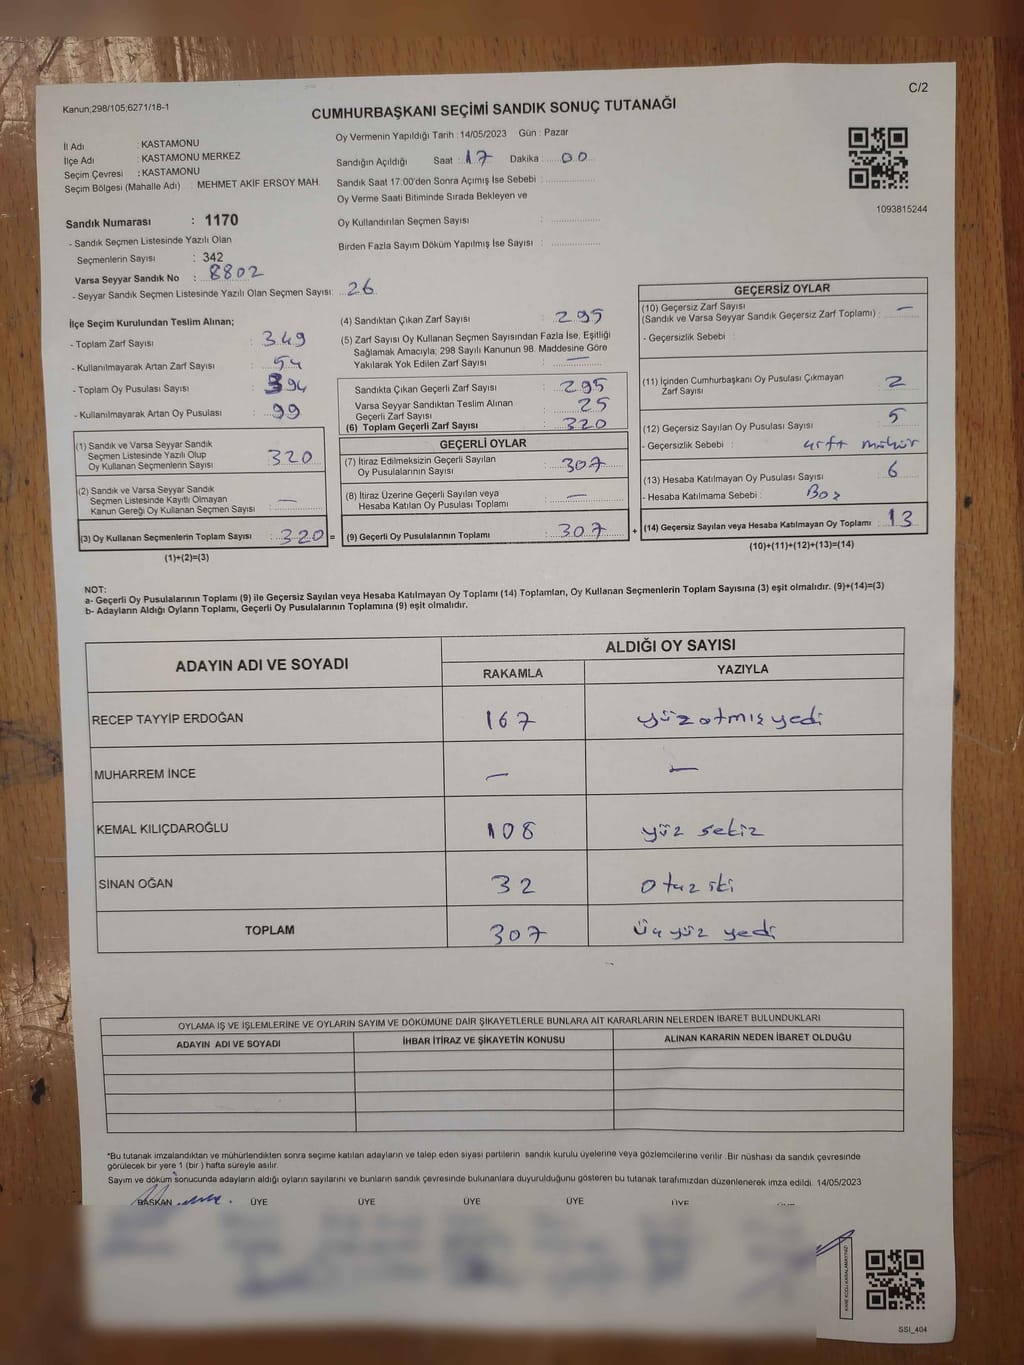 C/2
Kanun;298/105,6271/18-1
CUMHURBAŞKANI SEÇİMİ SANDIK SONUÇ TUTANAĞI
İl Adı : KASTAMONU
İlçe Adı : KASTAMONU MERKEZ
Seçim Çevresi : KASTAMONU
Seçim Bölgesi (Mahalle Adı) : MEHMET AKİF ERSOY MAH.
Oy Vermenin Yapıldığı Tarih : 14/05/2023 Gün : Pazar
Sandığın Açıldığı Saat : 17 Dakika : 00
Sandık Saat 17:00'den Sonra Açımış İse Sebebi :
Oy Verme Saati Bitiminde Sırada Bekleyen ve
Oy Kullandırılan Seçmen Sayısı :
Birden Fazla Sayım Döküm Yapılmış İse Sayısı :
1093815244
Sandık Numarası : 1170
- Sandık Seçmen Listesinde Yazılı Olan
Seçmenlerin Sayısı : 342
Varsa Seyyar Sandık No : 8802
- Seyyar Sandık Seçmen Listesinde Yazılı Olan Seçmen Sayısı: 26
İlçe Seçim Kurulundan Teslim Alınan;
- Toplam Zarf Sayısı : 349
- Kullanılmayarak Artan Zarf Sayısı : 54
- Toplam Oy Pusulası Sayısı : 394
- Kullanılmayarak Artan Oy Pusulası : 99
(1) Sandık ve Varsa Seyyar Sandık
Seçmen Listesinde Yazılı Olup
Oy Kullanan Seçmenlerin Sayısı : 320
(2) Sandık ve Varsa Seyyar Sandık
Seçmen Listesinde Kayıtlı Olmayan
Kanun Gereği Oy Kullanan Seçmen Sayısı : —
(3) Oy Kullanan Seçmenlerin Toplam Sayısı : 320 =
(1)+(2)=(3)
(4) Sandıktan Çıkan Zarf Sayısı : 295
(5) Zarf Sayısı Oy Kullanan Seçmen Sayısından Fazla İse, Eşitliği
Sağlamak Amacıyla; 298 Sayılı Kanunun 98. Maddesine Göre
Yakılarak Yok Edilen Zarf Sayısı : —
Sandıkta Çıkan Geçerli Zarf Sayısı : 295
Varsa Seyyar Sandıktan Teslim Alınan
Geçerli Zarf Sayısı : 25
(6) Toplam Geçerli Zarf Sayısı : 320
GEÇERLİ OYLAR
(7) İtiraz Edilmeksizin Geçerli Sayılan
Oy Pusulalarının Sayısı : 307
(8) İtiraz Üzerine Geçerli Sayılan veya
Hesaba Katılan Oy Pusulası Toplamı : —
(9) Geçerli Oy Pusulalarının Toplamı : 307 +
GEÇERSİZ OYLAR
(10) Geçersiz Zarf Sayısı
(Sandık ve Varsa Seyyar Sandık Geçersiz Zarf Toplamı) : —
- Geçersizlik Sebebi :
(11) İçinden Cumhurbaşkanı Oy Pusulası Çıkmayan
Zarf Sayısı : 2
(12) Geçersiz Sayılan Oy Pusulası Sayısı : 5
- Geçersizlik Sebebi : çift mühür
(13) Hesaba Katılmayan Oy Pusulası Sayısı : 6
- Hesaba Katılmama Sebebi : Boş
(14) Geçersiz Sayılan veya Hesaba Katılmayan Oy Toplamı : 13
(10)+(11)+(12)+(13)=(14)
NOT:
a- Geçerli Oy Pusulalarının Toplamı (9) ile Geçersiz Sayılan veya Hesaba Katılmayan Oy Toplamı (14) Toplamları, Oy Kullanan Seçmenlerin Toplam Sayısına (3) eşit olmalıdır. (9)+(14)=(3)
b- Adayların Aldığı Oyların Toplamı, Geçerli Oy Pusulalarının Toplamına (9) eşit olmalıdır.
ADAYIN ADI VE SOYADI
ALDIĞI OY SAYISI
RAKAMLA YAZIYLA
RECEP TAYYİP ERDOĞAN 167 yüz atmış yedi
MUHARREM İNCE — —
KEMAL KILIÇDAROĞLU 108 yüz sekiz
SİNAN OĞAN 32 otuz iki
TOPLAM 307 üç yüz yedi
OYLAMA İŞ VE İŞLEMLERİNE VE OYLARIN SAYIM VE DÖKÜMÜNE DAİR ŞİKAYETLERLE BUNLARA AİT KARARLARIN NELERDEN İBARET BULUNDUKLARI
ADAYIN ADI VE SOYADI İHBAR İTİRAZ VE ŞİKAYETİN KONUSU ALINAN KARARIN NEDEN İBARET OLDUĞU
*Bu tutanak imzalandıktan ve mühürlendikten sonra seçime katılan adayların ve talep eden siyasi partilerin sandık kurulu üyelerine veya gözlemcilerine verilir. Bir nüshası da sandık çevresinde
görülecek bir yere 1 (bir) hafta süreyle asılır.
Sayım ve döküm sonucunda adayların aldığı oyların sayılarını ve bunların sandık çevresinde bulunanlara duyurulduğunu gösteren bu tutanak tarafımızdan düzenlenerek imza edildi. 14/05/2023
BAŞKAN ÜYE ÜYE ÜYE ÜYE ÜYE
SSI_404